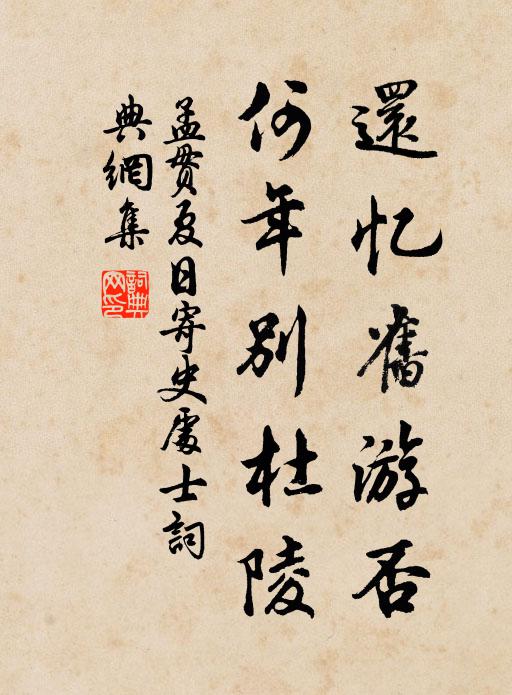 還忆舊游否
何年別杜陵
孟贯夏日寄史處士詞
典網集
詞典
网印